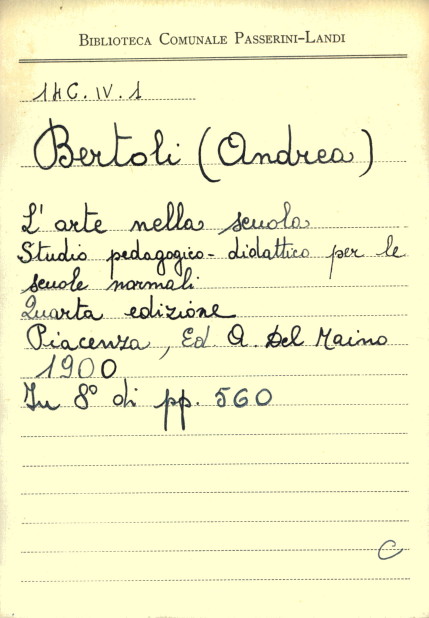 BIBLIOTECA COMUNALE PASSERINI-LANDI
14C. IV. 1
Bertoli (Andrea)
L'arte nella scuola
Studio pedagogico-didattico per le
scuole normali
Quarta edizione
Piacenza, Ed. A. Del Maino
1900
In 8° di pp. 560
C